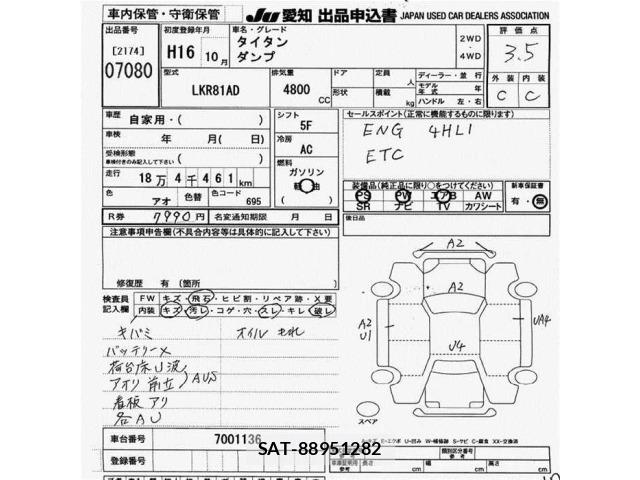 車内保管・守衛保管 JU 愛知 出品申込書 JAPAN USED CAR DEALERS ASSOCIATION
出品番号 [2174] 07080
初度登録年月 H16 10月
車名・グレード タイタン ダンプ
2WD・4WD
評価点 3.5
型式 LKR81AD
排気量 4800 CC
ドア 形状
定員 人
積載 kg
ディーラー・並行
モデル年式 年
ハンドル 左・右
外装 内装
C C
車歴 自家用・(
車検 年 月(日)
受検形態 車検付きのみ記入して下さい (
走行 18万4千461km
色 アオ 色替 色コード 695
R券 7990円 名変通知期限 月 日
シフト 5F
冷房 AC
燃料 ガソリン 軽油 ( )
セールスポイント(正常に機能するものに限ります)
ENG 4HL1
ETC
装備品(純正品に限り○をつけてください)
PS PW エアB AW
SR ナビ TV カワシート
新車保証書 有・無
後日品
注意事項申告欄(不具合内容等は具体的に記入して下さい)
修復歴 有(箇所 )
検査員記入欄
FW キズ・飛石・ヒビ割・リペア跡・X要
内装 キズ・汚レ・コゲ・穴・スレ・キレ・破レ
キバミ オイルもれ
バッテリーX
荷台床U波
アオリ前立 AUS
看板アリ
各AU
A2
A2
A2
U1
UA4
U4
スペア
A-キズ E-エクボ U-凹み W-補修跡 S-サビ C-腐食 XX-交換済
車台番号 7001136
SAT-88951282
登録番号
車庫証明用参考
類別区分番号
長さ cm 幅 cm 高さ cm